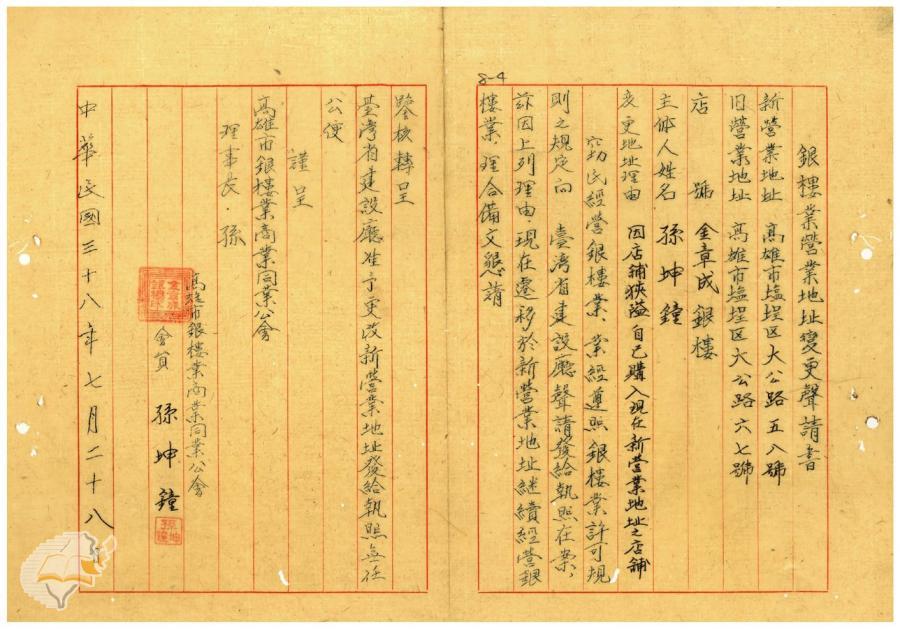 8-4
銀樓業營業地址變更聲請書
新營業地址　高雄市塩埕区大公路五八號
旧營業地址　高雄市塩埕区大公路六七號
店　　號　金章成銀樓
主体人姓名　孫坤鐘
変更地址理由　因店舖狹隘自己購入現在新營業地址之店舖
竊民經營銀樓業、業經遵照銀樓業許可規
則之規定向　臺湾省建設廳聲請發給執照在案、
茲因上列理由、現在遷移於新營業地址継續經營銀
樓業、理合備文懇請
鑒核轉呈
臺湾省建設廳准予更改新營業地址發給執照無任
公便
謹呈
高雄市銀樓業商業同業公會
理事長・孫
高雄市銀樓業商業同業公會
會員　孫坤鐘
孫坤鐘
中華民國三十八年七月二十八日